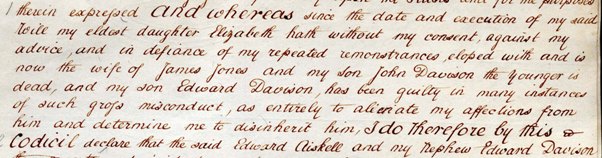 therein expressed And whereas since the date and execution of my said
Will my eldest daughter Elizabeth hath without my consent, against my
advice, and in defiance of my repeated remonstrances, eloped with and is
now the wife of James Jones and my son John Davison the younger is
dead, and my son Edward Davison, has been guilty in many instances
of such gross misconduct, as entirely to alienate my affections from
him and determine me to disinherit him, I do therefore by this
Codicil declare that the said Edward Aiskell and my nephew Edward Davison